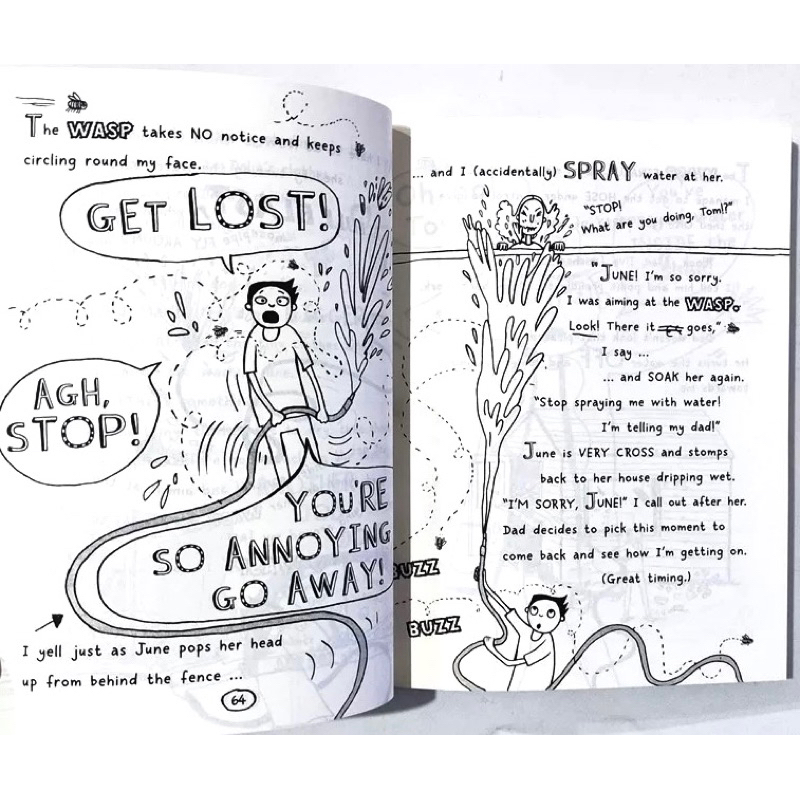 The WASP takes NO notice and keeps
circling round my face.
GET LOST!
AGH,
STOP!
YOU'RE
SO ANNOYING
GO AWAY!
I yell just as June pops her head
up from behind the fence ...
64
... and I (accidentally) SPRAY water at her.
"STOP!
What are you doing, Tom!?"
"JUNE! I'm so sorry.
I was aiming at the WASP.
Look! There it goes,"
I say ...
... and SOAK her again.
"Stop spraying me with water!
I'm telling my dad!"
June is VERY CROSS and stomps
back to her house dripping wet.
"I'M SORRY, JUNE!" I call out after her.
Dad decides to pick this moment to
come back and see how I'm getting on.
(Great timing.)
BUZZ
BUZZ